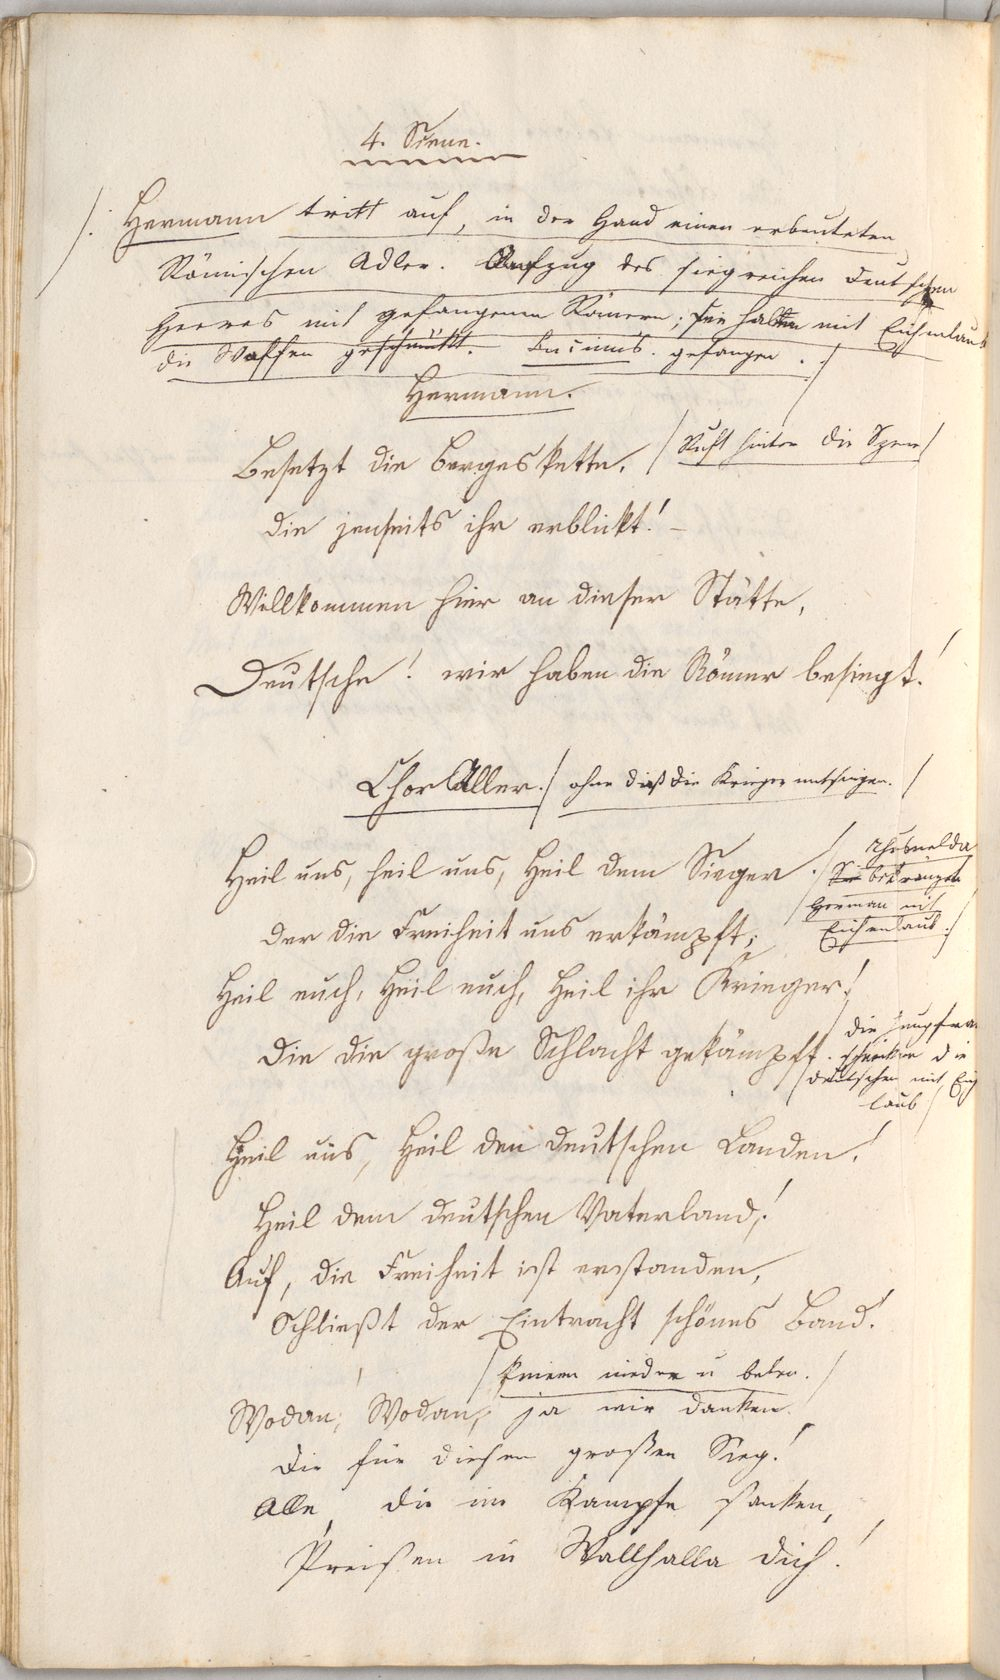 4. Scene.
/: Hermann tritt auf, in der Hand einen erbeuteten
Römischen Adler. Aufzug des siegreichen Deutschen
Heeres mit gefangenen Römern; sie halten mit Eichenlaub
die Waffen geschmückt. gefangen. :/
Hermann.
Besetzt die Bergeskette, / Ruft hinter die Szene /
die jenseits ihr erblickt! –
Willkommen hier an dieser Stätte,
Deutsche! wir haben die Römer besiegt!
Chor Aller. / ohne daß die Krieger mitsingen. /
Heil uns, heil uns, Heil dem Sieger /: Thusnelda
bekränzet
Herman mit
der die Freiheit uns erkämpft; Eichenlaub :/
Heil euch, Heil euch, Heil ihr Krieger!
Die die große Schlacht gekämpft. / die Jungfrau
schmücken die
deutschen mit Eich
laub /
Heil uns, Heil den deutschen Landen!
Heil dem deutschen Vaterland!
Auf, die Freiheit ist erstanden,
Schließt der Eintracht schönes Band!
/ knieen nieder u beten. /
Wodan, Wodan, ja wir danken
Dir für diesen großen Sieg!
Alle, die im Kampfe sanken,
Preisen in Wallhalla dich!